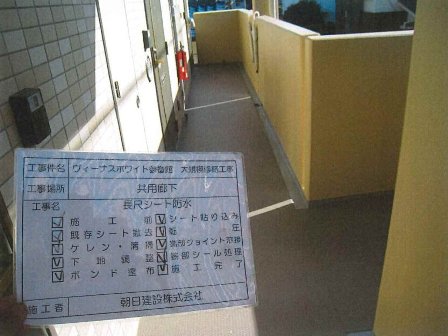 工事件名 ヴィーナスホワイト参番館 大規模修繕工事
工事場所 共用廊下
工事名 長尺シート防水
施工前 シート貼り込み
既存シート撤去 転圧
ケレン・清掃 端部ジョイント溶接
下地調整 端部シール処理
ボンド塗布 施工完了
施工者 朝日建設株式会社